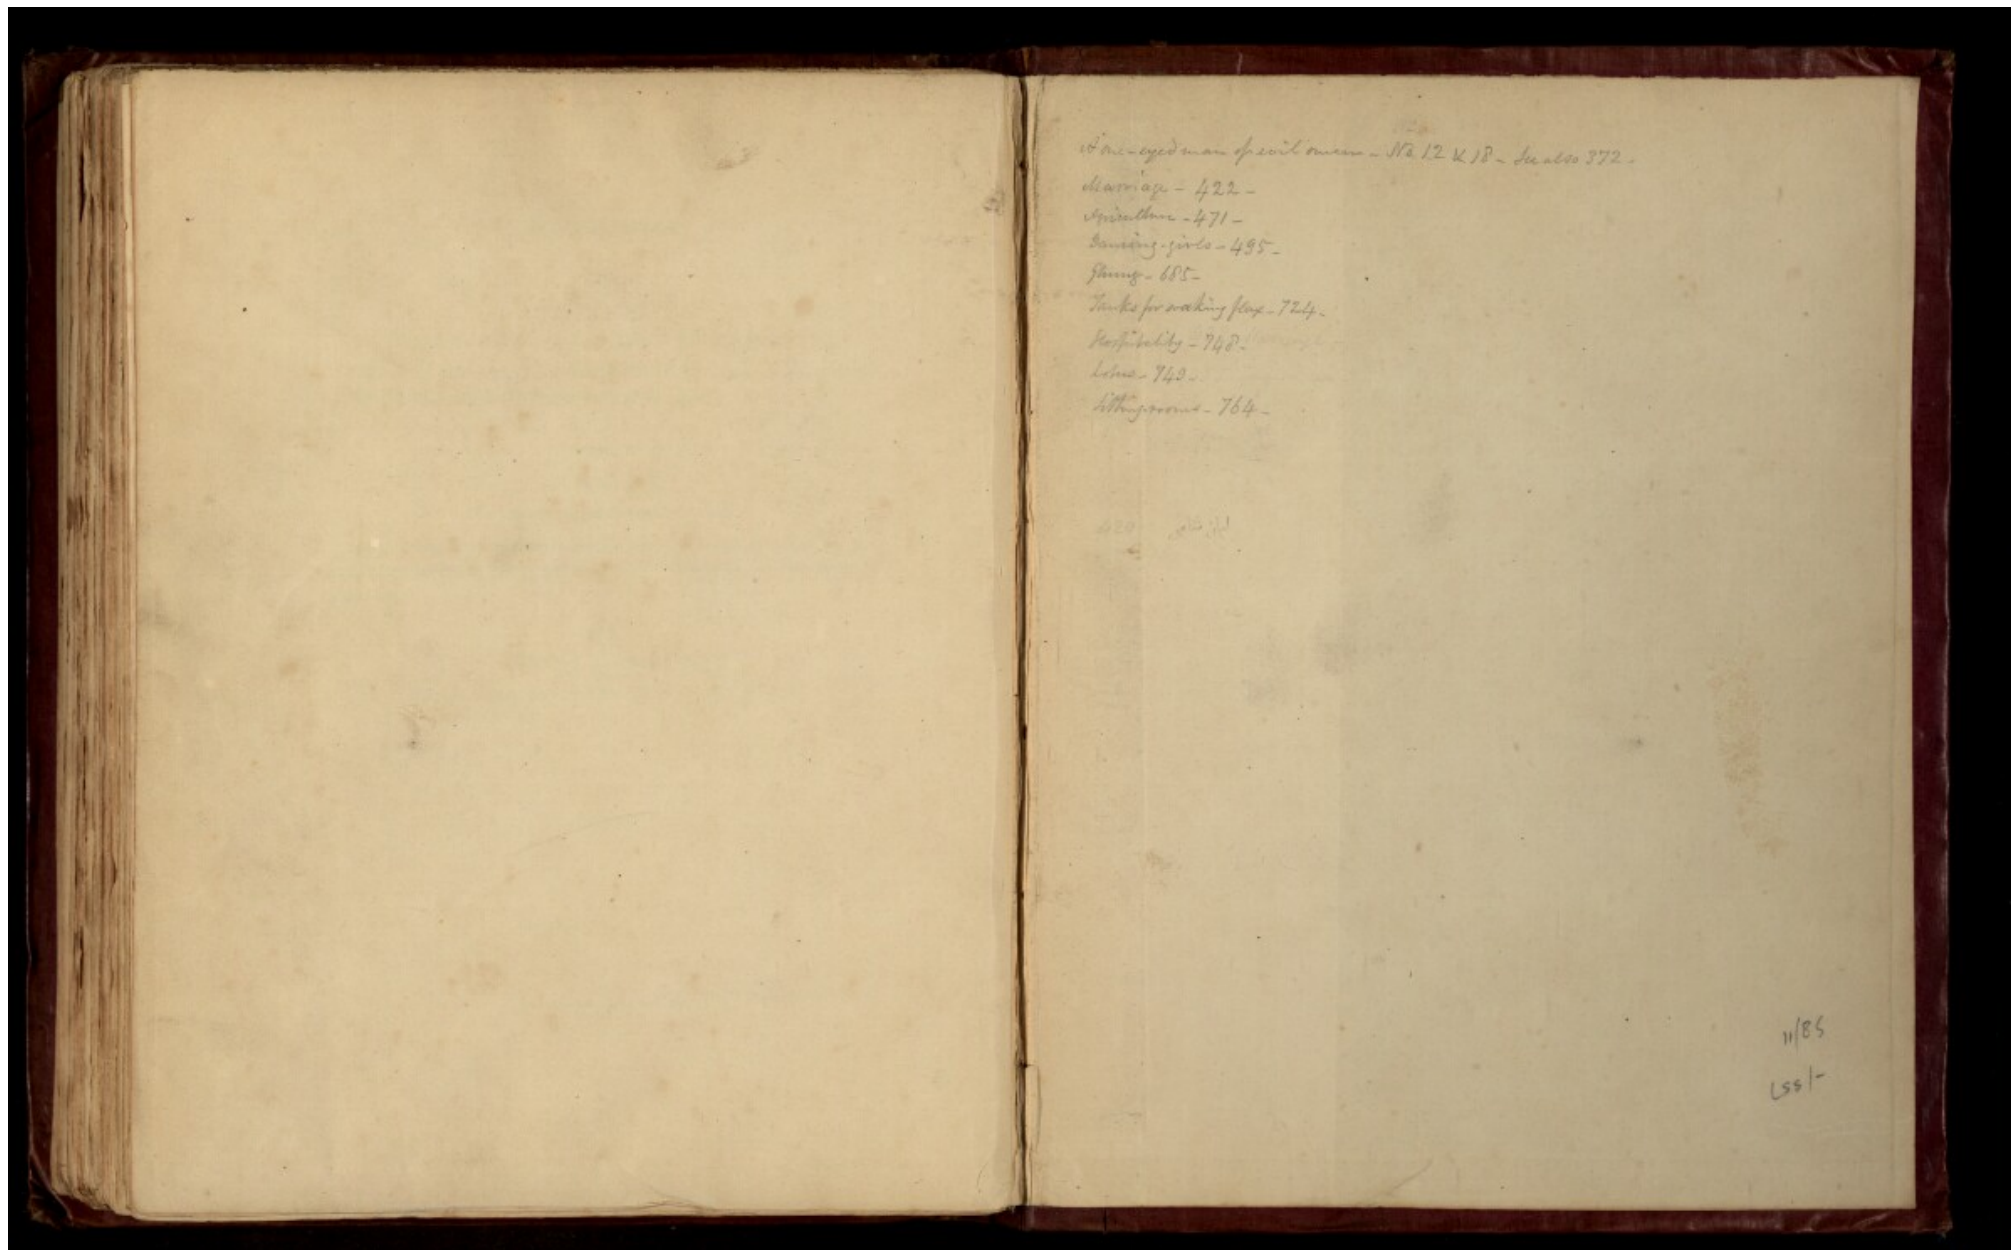 A one-eyed man of evil omen - No 12 & 18 - See also 372 -
Marriage - 422 -
Apiculture - 471 -
Dancing-girls - 495 -
- 685 -
Tanks for soaking flax - 724 -
Hospitality - 748 -
Lotus - 749 -
Sitting rooms - 764 -
11/85